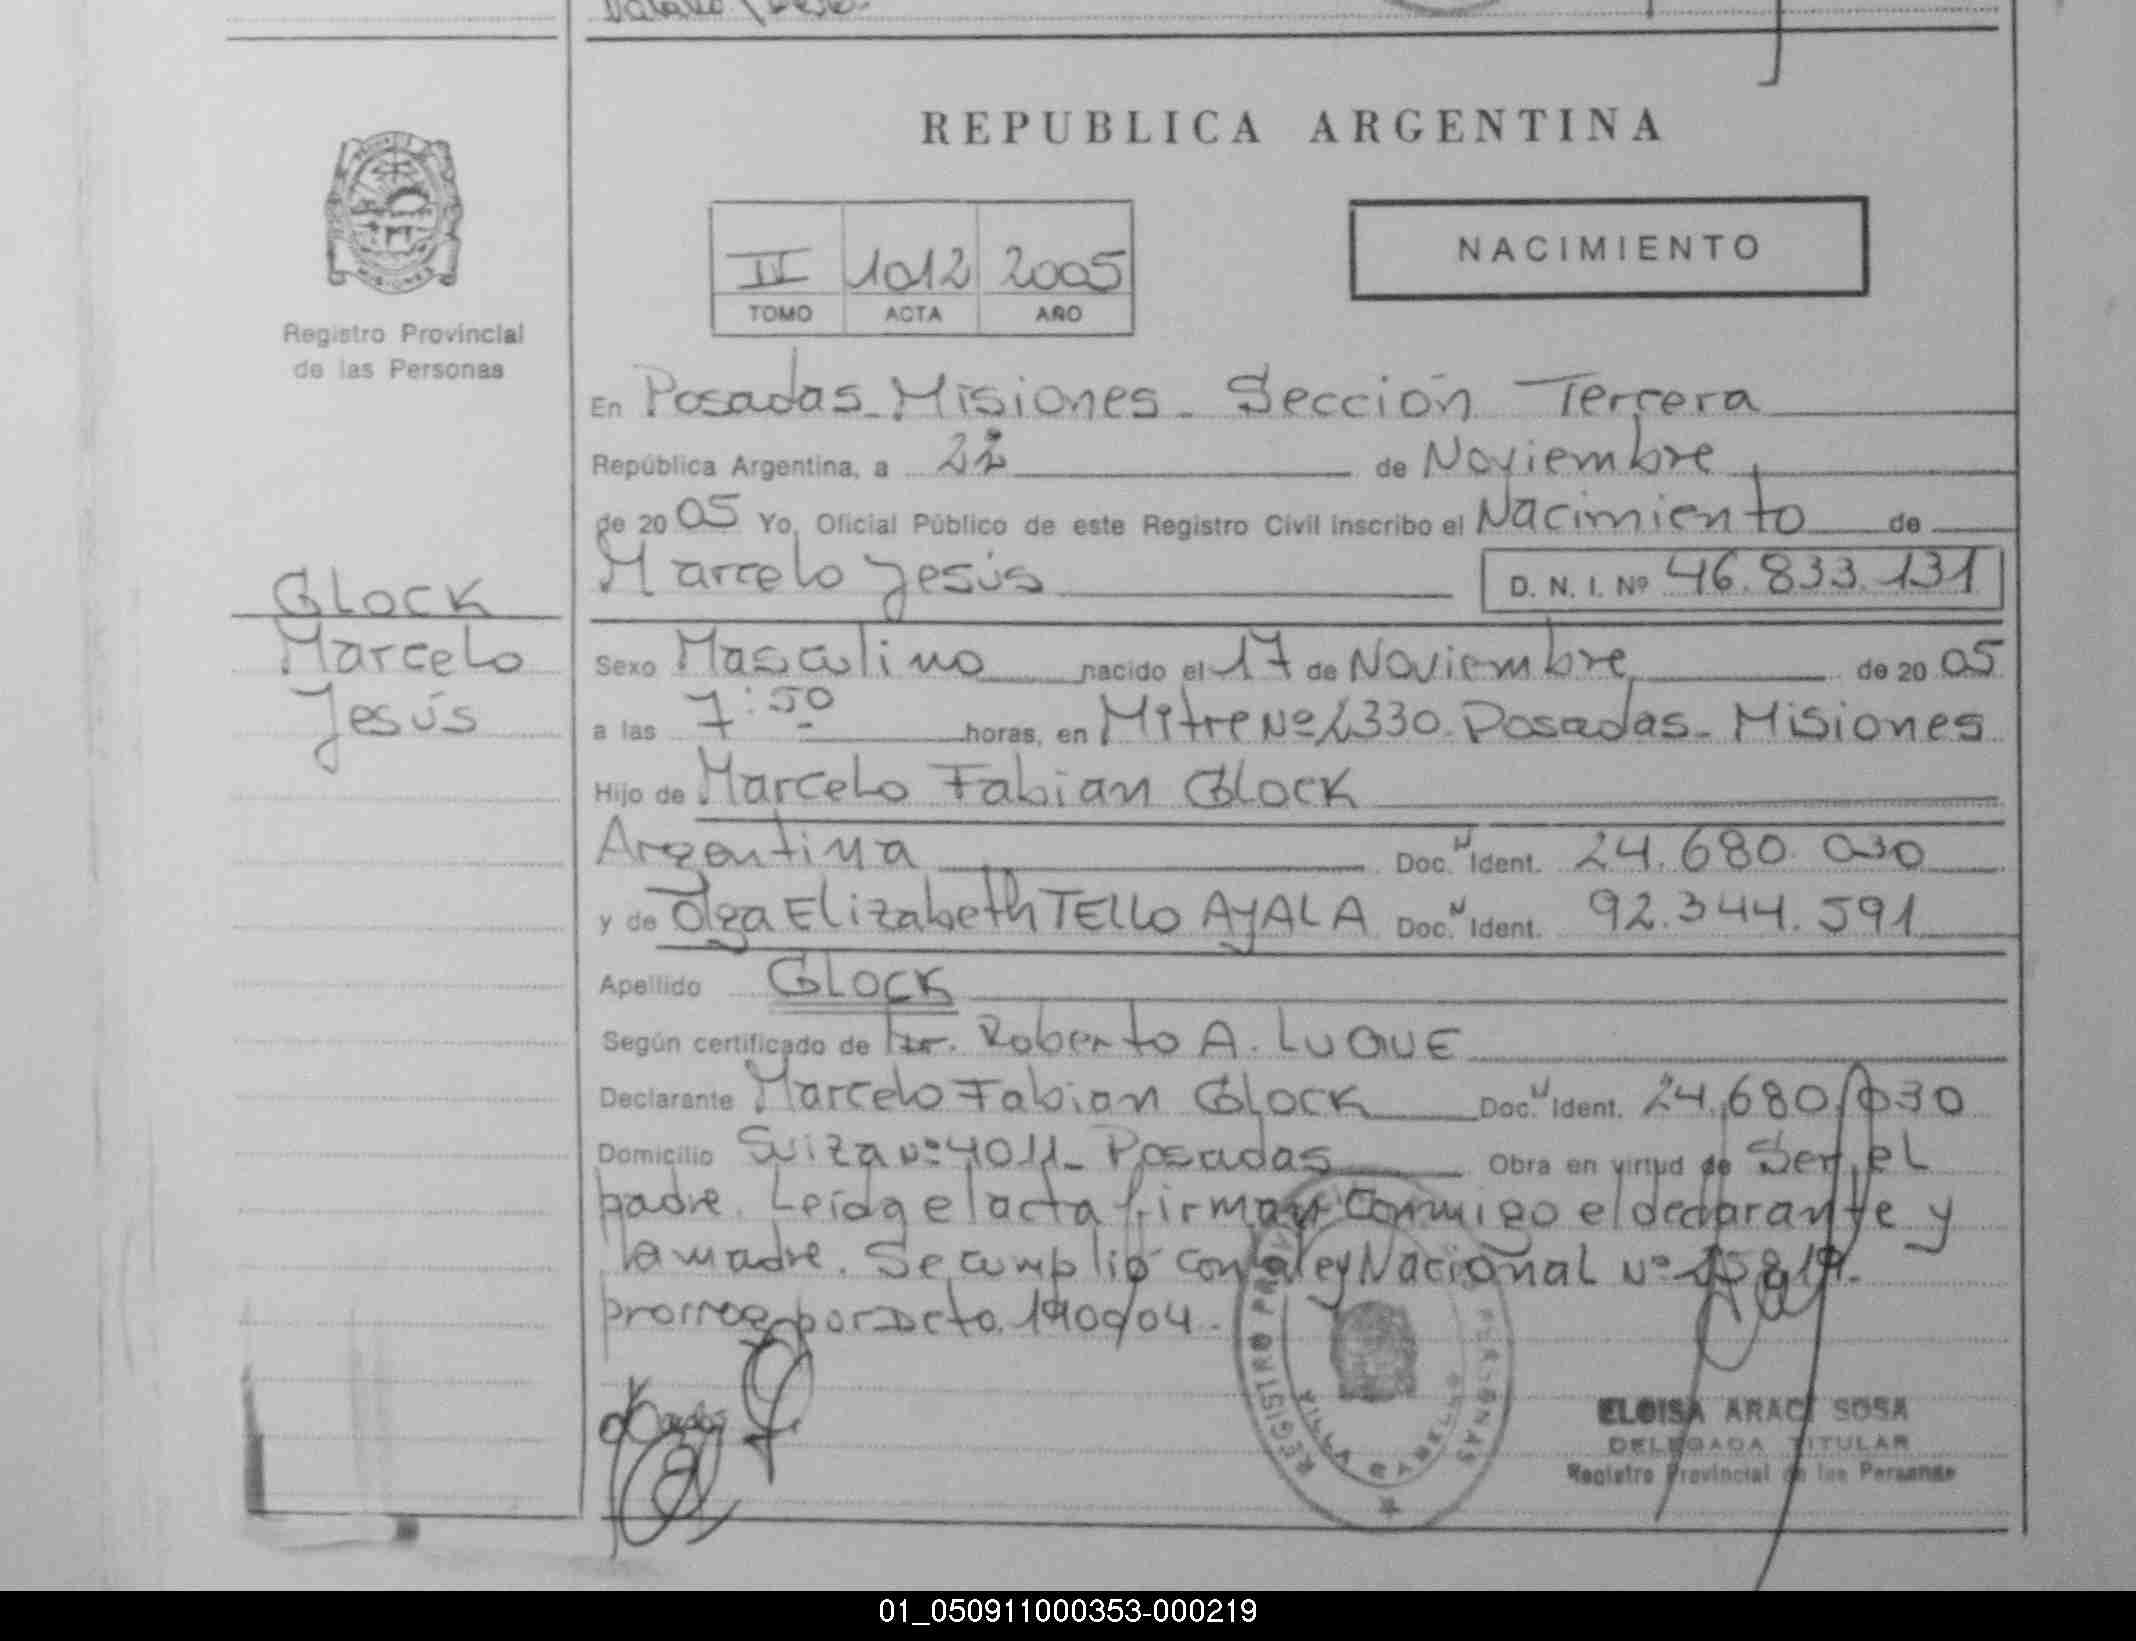 REPUBLICA ARGENTINA
II 1012 2005
TOMO ACTA AÑO
NACIMIENTO
Registro Provincial
de las Personas
Glock
Marcelo
Jesús
En Posadas-Misiones-Sección Tercera
República Argentina, a 22 de Noviembre
de 2005 Yo, Oficial Público de este Registro Civil inscribo el Nacimiento de
Marcelo Jesús D. N. I. Nº 46.833.131
Sexo Masculino nacido el 17 de Noviembre de 2005
a las 7:50 horas, en Mitre Nº 2330-Posadas-Misiones
Hijo de Marcelo Fabian Glock
Argentina Doc. Ident. 24.680.030
y de Olga Elizabeth TELLO AYALA Doc. Ident. 92.344.591
Apellido GLOCK
Según certificado de Dr. Roberto A. LUQUE
Declarante Marcelo Fabian Glock Doc. Ident. 24.680.030
Domicilio Suiza Nº 4011-Posadas Obra en virtud de Ser el
padre. Leída el acta firman conmigo el declarante y
la madre. Se cumplió con la ley Nacional Nº 25819.
prorrog por Dcto. 190/04.
REGISTRO PERSONAS
VILLA CABELLO
ELOISA ARACI SOSA
DELEGADA TITULAR
Registro Provincial de las Personas
01_050911000353-000219